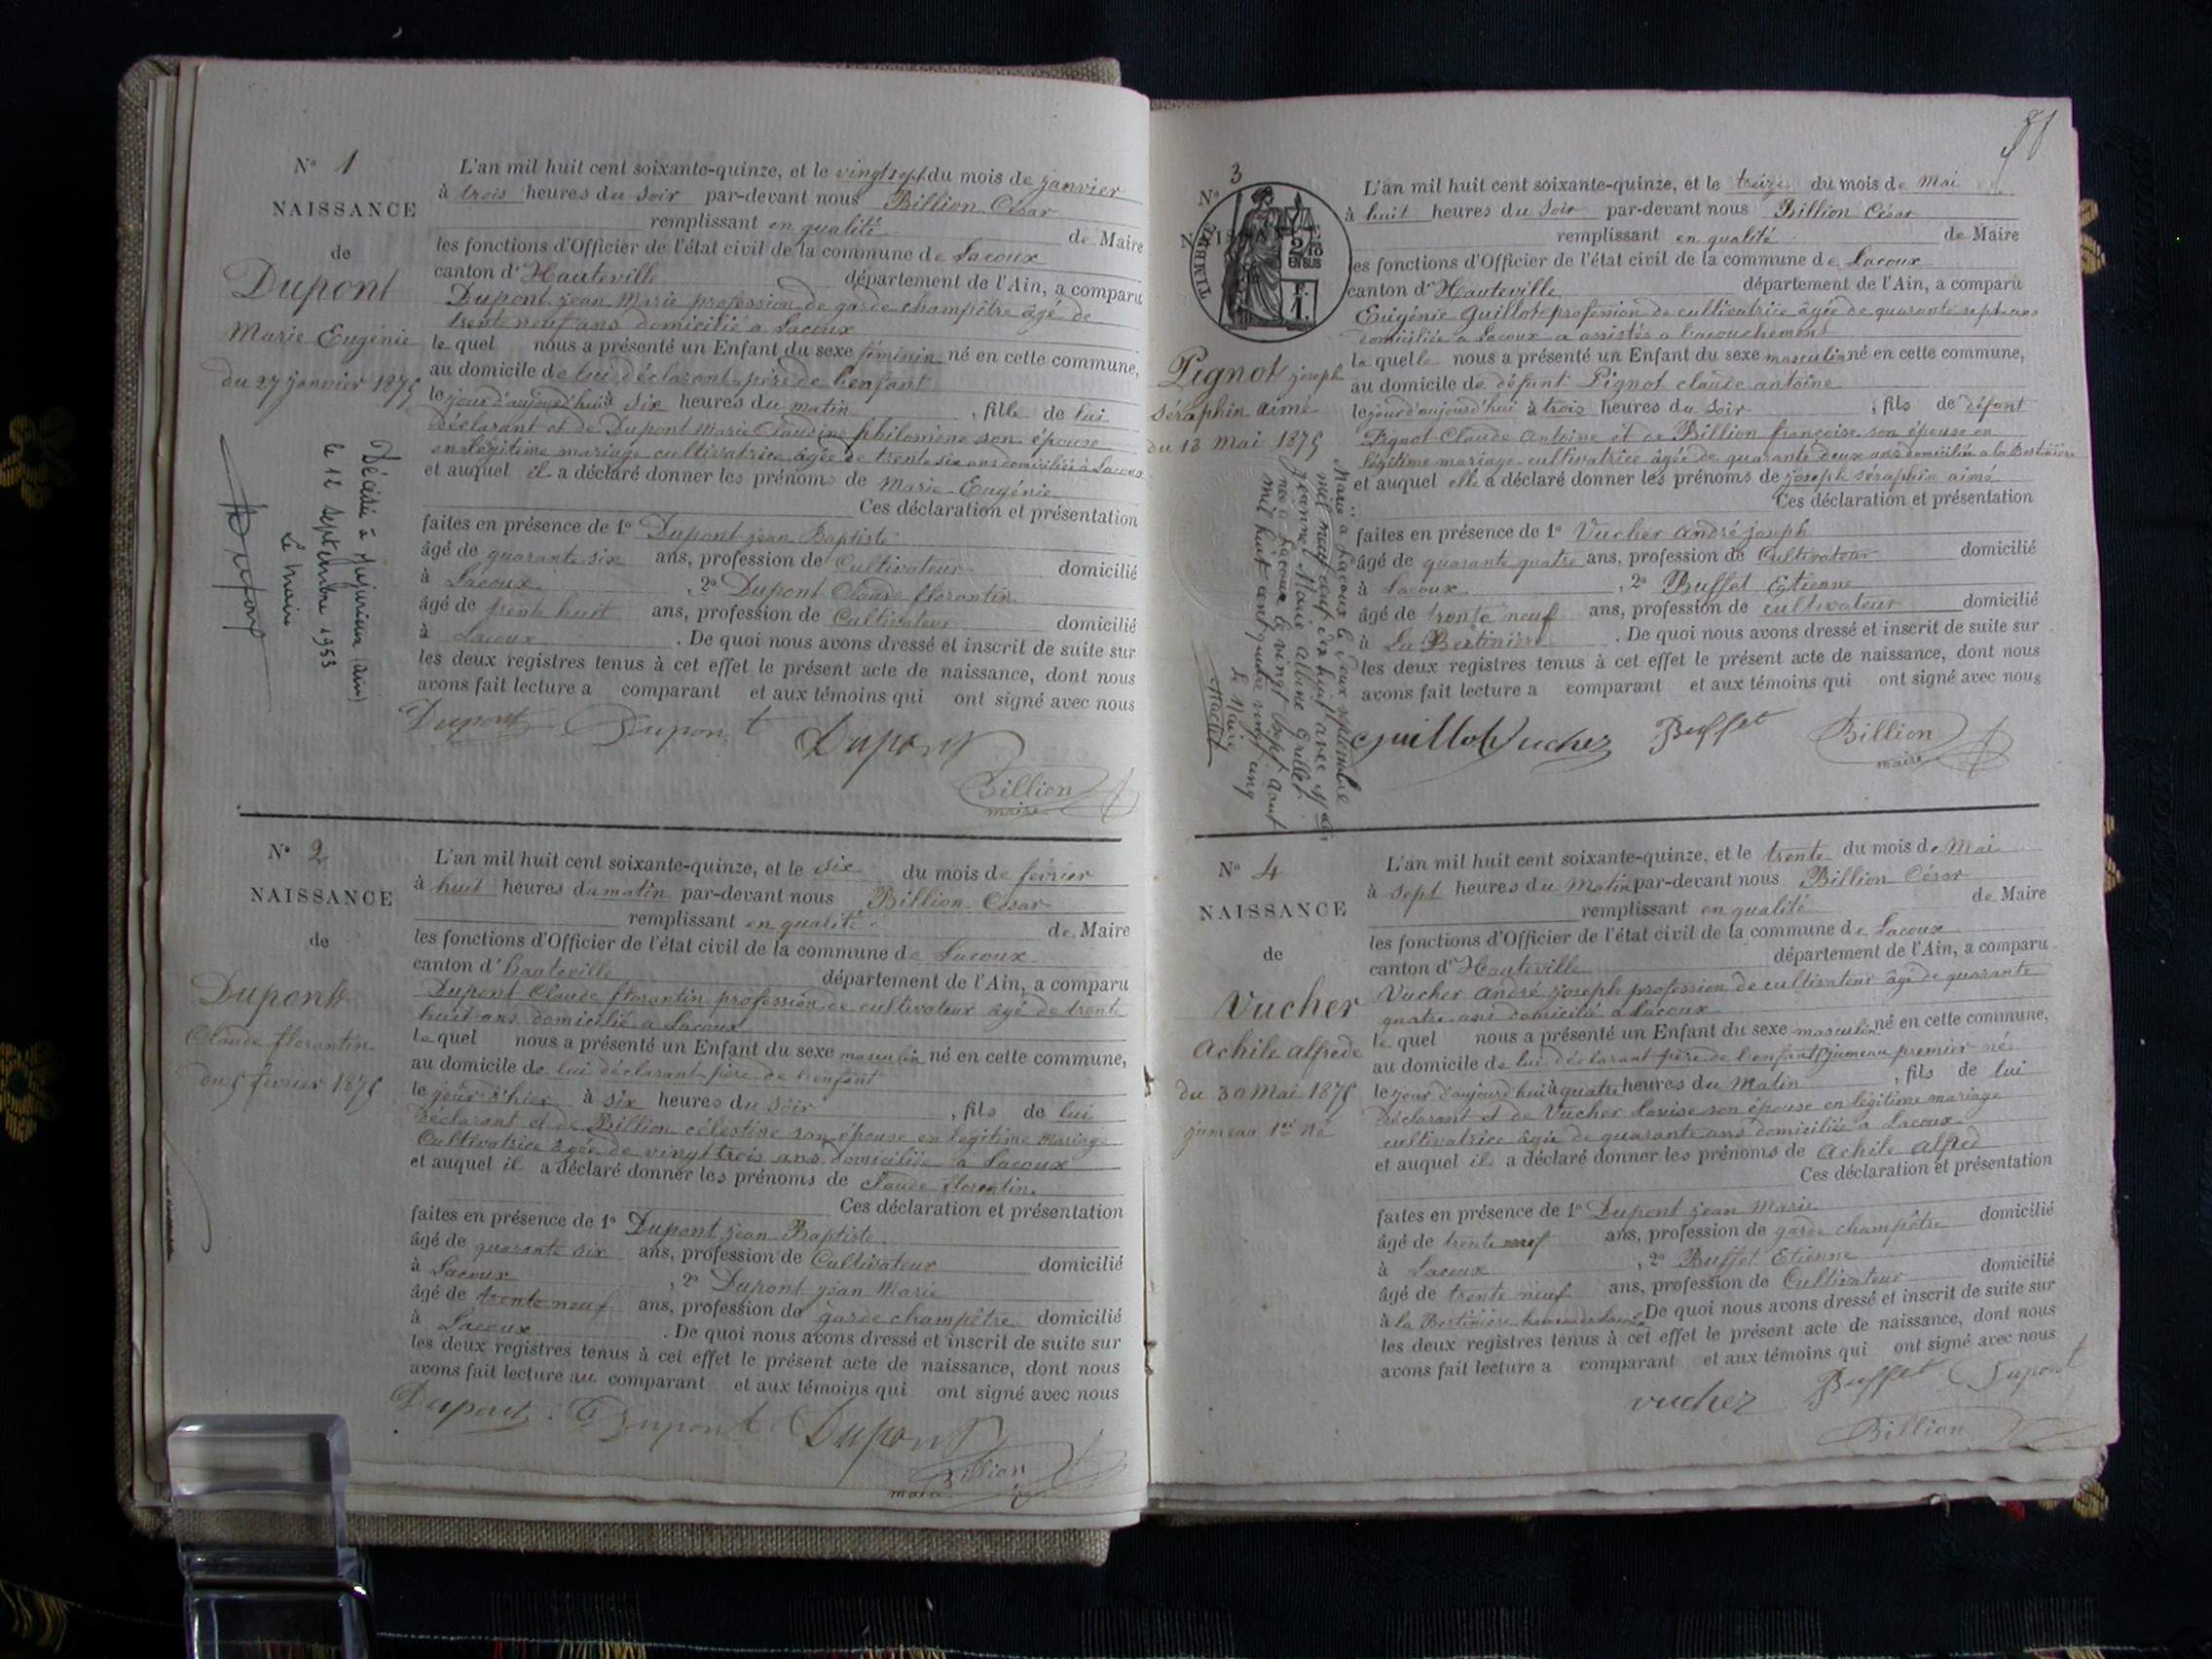 N° 1
NAISSANCE
de
Dupont
Marie Eugénie
du 27 janvier 1875
Décédée à Jujurieux (Ain)
le 12 septembre 1953
Le Maire
L'an mil huit cent soixante-quinze, et le vingt sept du mois de janvier
à trois heures du soir par-devant nous Billion César
remplissant en qualité de Maire
les fonctions d'Officier de l'état civil de la commune de Lacoux
canton d'Hauteville département de l'Ain, a comparu
Dupont jean Marie profession de garde champêtre âgé de
trente neuf ans domicilié a Lacoux
le quel nous a présenté un Enfant du sexe féminin né en cette commune,
au domicile de lui déclarant père de l'enfant
le jour d'aujourd'hui à six heures du matin , fille de lui
déclarant et de Dupont Marie Claudine philomène son épouse
en légitime mariage cultivatrice âgée de trente six ans domiciliée à Lacoux
et auquel il a déclaré donner les prénoms de Marie Eugénie
Ces déclaration et présentation
faites en présence de 1° Dupont jean Baptiste
âgé de quarante six ans, profession de Cultivateur domicilié
à Lacoux , 2° Dupont Claude florantin
âgé de trente huit ans, profession de Cultivateur domicilié
à Lacoux . De quoi nous avons dressé et inscrit de suite sur
les deux registres tenus à cet effet le présent acte de naissance, dont nous
avons fait lecture a comparant et aux témoins qui ont signé avec nous
Dupont Dupont Dupont
Billion
maire
N° 2
NAISSANCE
de
Dupont
Claude florantin
du 5 février 1875
L'an mil huit cent soixante-quinze, et le six du mois de février
à huit heures du matin par-devant nous Billion César
remplissant en qualité de Maire
les fonctions d'Officier de l'état civil de la commune de Lacoux
canton d'hauteville département de l'Ain, a comparu
Dupont Claude florantin profession de cultivateur âgé de trente
huit ans domicilié a Lacoux
le quel nous a présenté un Enfant du sexe masculin né en cette commune,
au domicile de lui déclarant père de l'enfant
le jour d'hier à six heures du soir , fils de lui
Déclarant et de Billion célestine son épouse en légitime mariage
Cultivatrice âgée de vingt trois ans domiciliée a Lacoux
et auquel il a déclaré donner les prénoms de Claude florentin
Ces déclaration et présentation
faites en présence de 1° Dupont jean Baptiste
âgé de quarante six ans, profession de Cultivateur domicilié
à Lacoux , 2° Dupont jean Marie
âgé de trente neuf ans, profession de garde champêtre domicilié
à Lacoux . De quoi nous avons dressé et inscrit de suite sur
les deux registres tenus à cet effet le présent acte de naissance, dont nous
avons fait lecture au comparant et aux témoins qui ont signé avec nous
Dupont Dupont Dupont
Billion
maire
N° 3
TIMBRE
2/10
EN SUS
Pignot joseph
Séraphin aimé
du 13 mai 1875
Marié à Lacoux le deux septembre
mil neuf cent huit avec
Jeanne Marie Grillet
née à Lacoux le vingt sept août
mil huit cent quatre vingt cinq
Le Maire
L'an mil huit cent soixante-quinze, et le treize du mois de Mai
à huit heures du soir par-devant nous Billion César
remplissant en qualité de Maire
les fonctions d'Officier de l'état civil de la commune de Lacoux
canton d'Hauteville département de l'Ain, a comparu
Eugénie Guillot profession de cultivatrice âgée de quarante sept ans
domiciliée a Lacoux a assistée a l'acouchement
la quelle nous a présenté un Enfant du sexe masculin né en cette commune,
au domicile de défunt Pignot claude antoine
le jour d'aujourd'hui à trois heures du Soir , fils de défunt
Pignot Claude Antoine et de Billion françoise son épouse en
légitime mariage cultivatrice âgée de quarante deux ans domiciliée a la Bertinière
et auquel elle a déclaré donner les prénoms de joseph séraphin aimé
Ces déclaration et présentation
faites en présence de 1° Vucher André joseph
âgé de quarante quatre ans, profession de Cultivateur domicilié
à Lacoux , 2° Buffet Etienne
âgé de trente neuf ans, profession de cultivateur domicilié
à La Bertinière . De quoi nous avons dressé et inscrit de suite sur
les deux registres tenus à cet effet le présent acte de naissance, dont nous
avons fait lecture a comparant et aux témoins qui ont signé avec nous
Guillot Vucher Buffet Billion
maire
N° 4
NAISSANCE
de
Vucher
Achile alfrede
du 30 Mai 1875
jumeau 1er né
L'an mil huit cent soixante-quinze, et le trente du mois de Mai
à sept heures du Matin par-devant nous Billion César
remplissant en qualité de Maire
les fonctions d'Officier de l'état civil de la commune de Lacoux
canton d'Hauteville département de l'Ain, a comparu
Vucher André joseph profession de cultivateur âgé de quarante
quatre ans domicilié a Lacoux
le quel nous a présenté un Enfant du sexe masculin né en cette commune,
au domicile de lui déclarant père de l'enfant jumeau premier né
le jour d'aujourd'hui à quatre heures du Matin , fils de lui
Déclarant et de Vucher Louise son épouse en légitime mariage
cultivatrice âgée de quarante ans domiciliée a Lacoux
et auquel il a déclaré donner les prénoms de Achile alfred
Ces déclaration et présentation
faites en présence de 1° Dupont jean Marie
âgé de trente neuf ans, profession de garde champêtre domicilié
à Lacoux , 2° Buffet Etienne
âgé de trente neuf ans, profession de Cultivateur domicilié
à la Bertinière hameau de Lacoux De quoi nous avons dressé et inscrit de suite sur
les deux registres tenus à cet effet le présent acte de naissance, dont nous
avons fait lecture a comparant et aux témoins qui ont signé avec nous
vucher Buffet Dupont
Billion